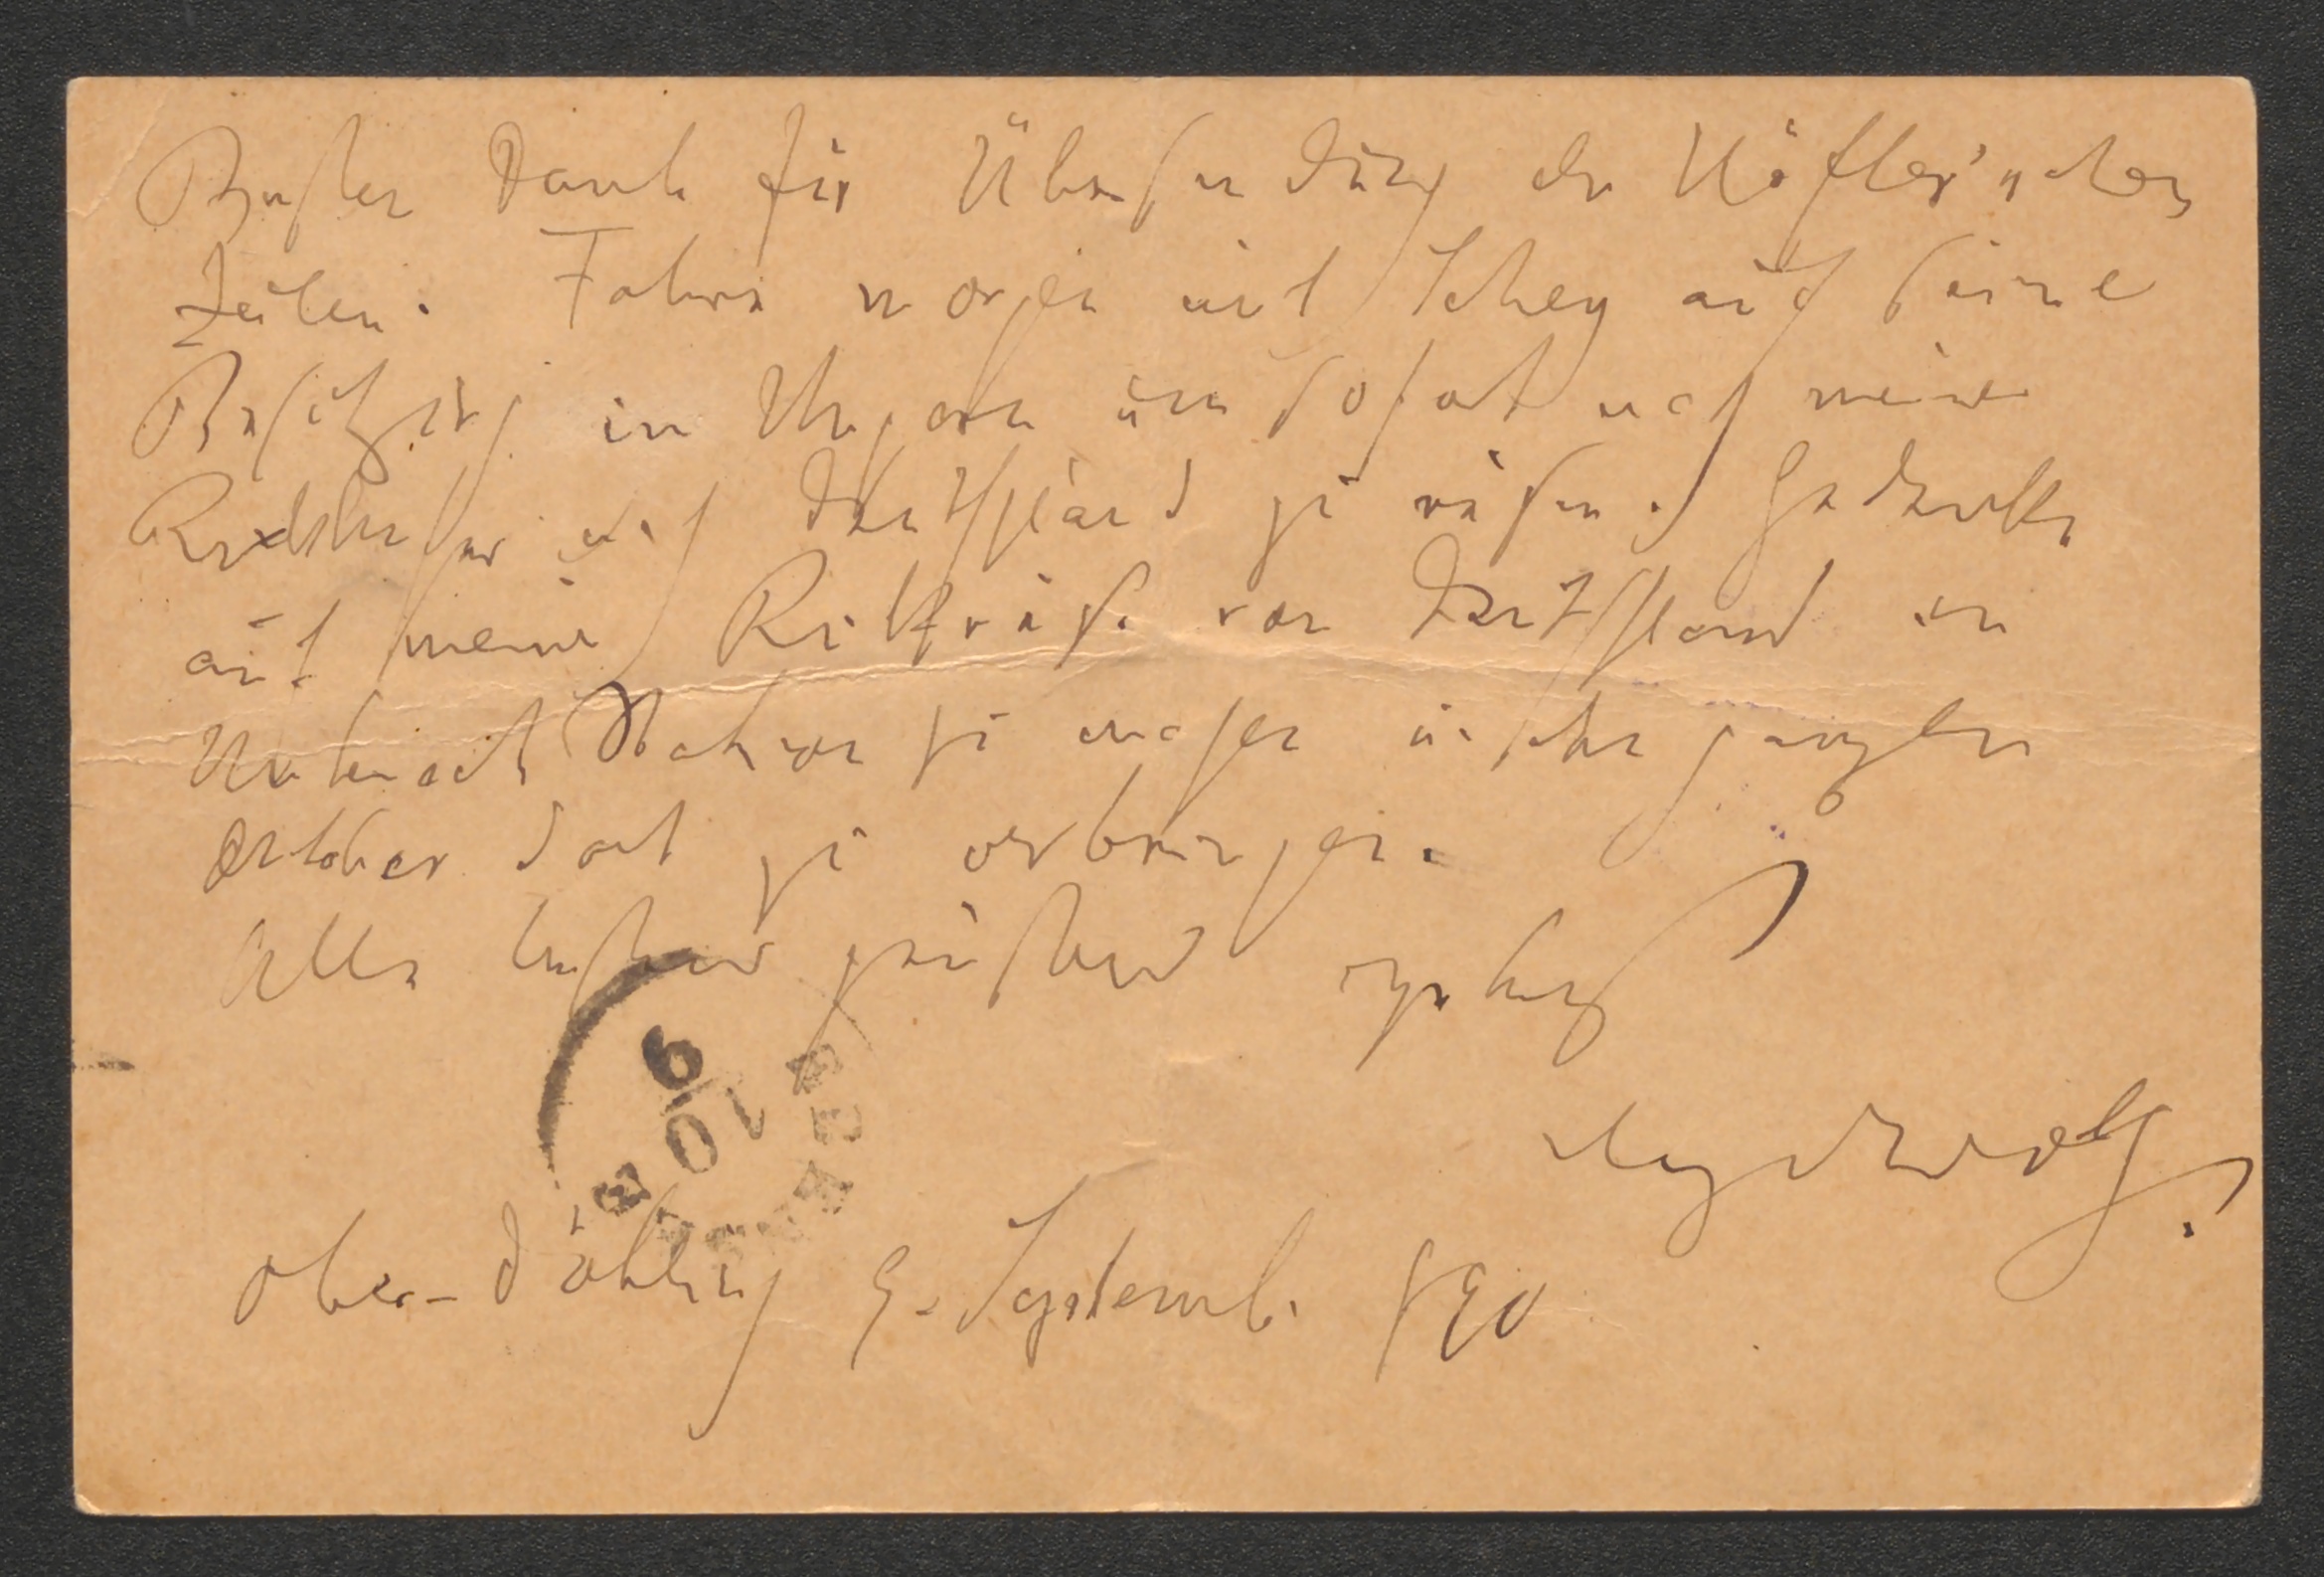 Besten Dank für Übersendung der Höfler'schen
Zeilen. Fahre morgen mit Schey auf seine
Besitzung in Ungarn um sofort nach meiner
Rückkehr nach Deutschland zu reisen. Gedenke
auf meiner Rückreise von Deutschland in
Unterach Station zu machen u. den ganzen
October dort zu verbringen.
Alle bestens grüßend ergebenst
Hugo Wolf
Ober-Döbling 9. Septemb. 890
9/10